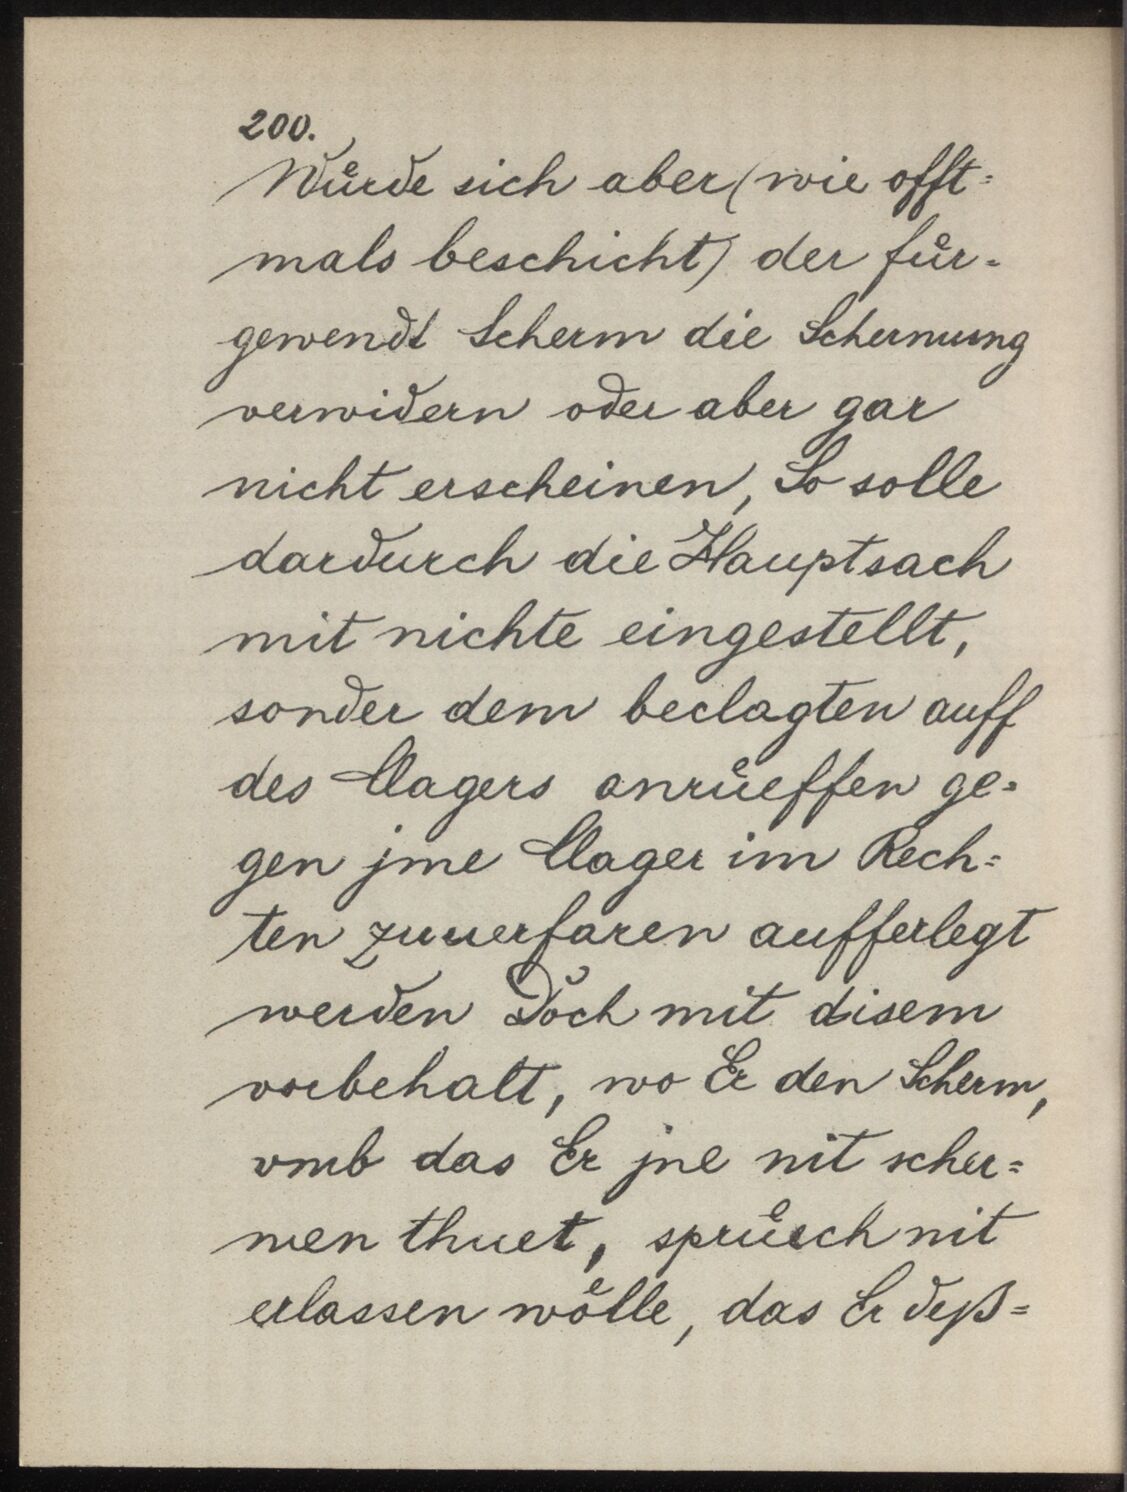 200.
Wuͤrde sich aber (wie offt=
mals beschicht) der fuͤr=
gewendt Scherm die Schermung
verwidern oder aber gar
nicht erscheinen, So solle
dardurch die Hauptsach
mit nichte eingestellt,
sonder dem beclagten auff
des Clagers anruͤeffen ge=
gen jme Clager im Rech=
ten zuuerfaren aufferlegt
werden Doch mit disem
vorbehalt, wo Er den Scherm,
vmb das Er jne nit scher=
men thuet, spruͤch nit
erlassen woͤlle, das Er deß=